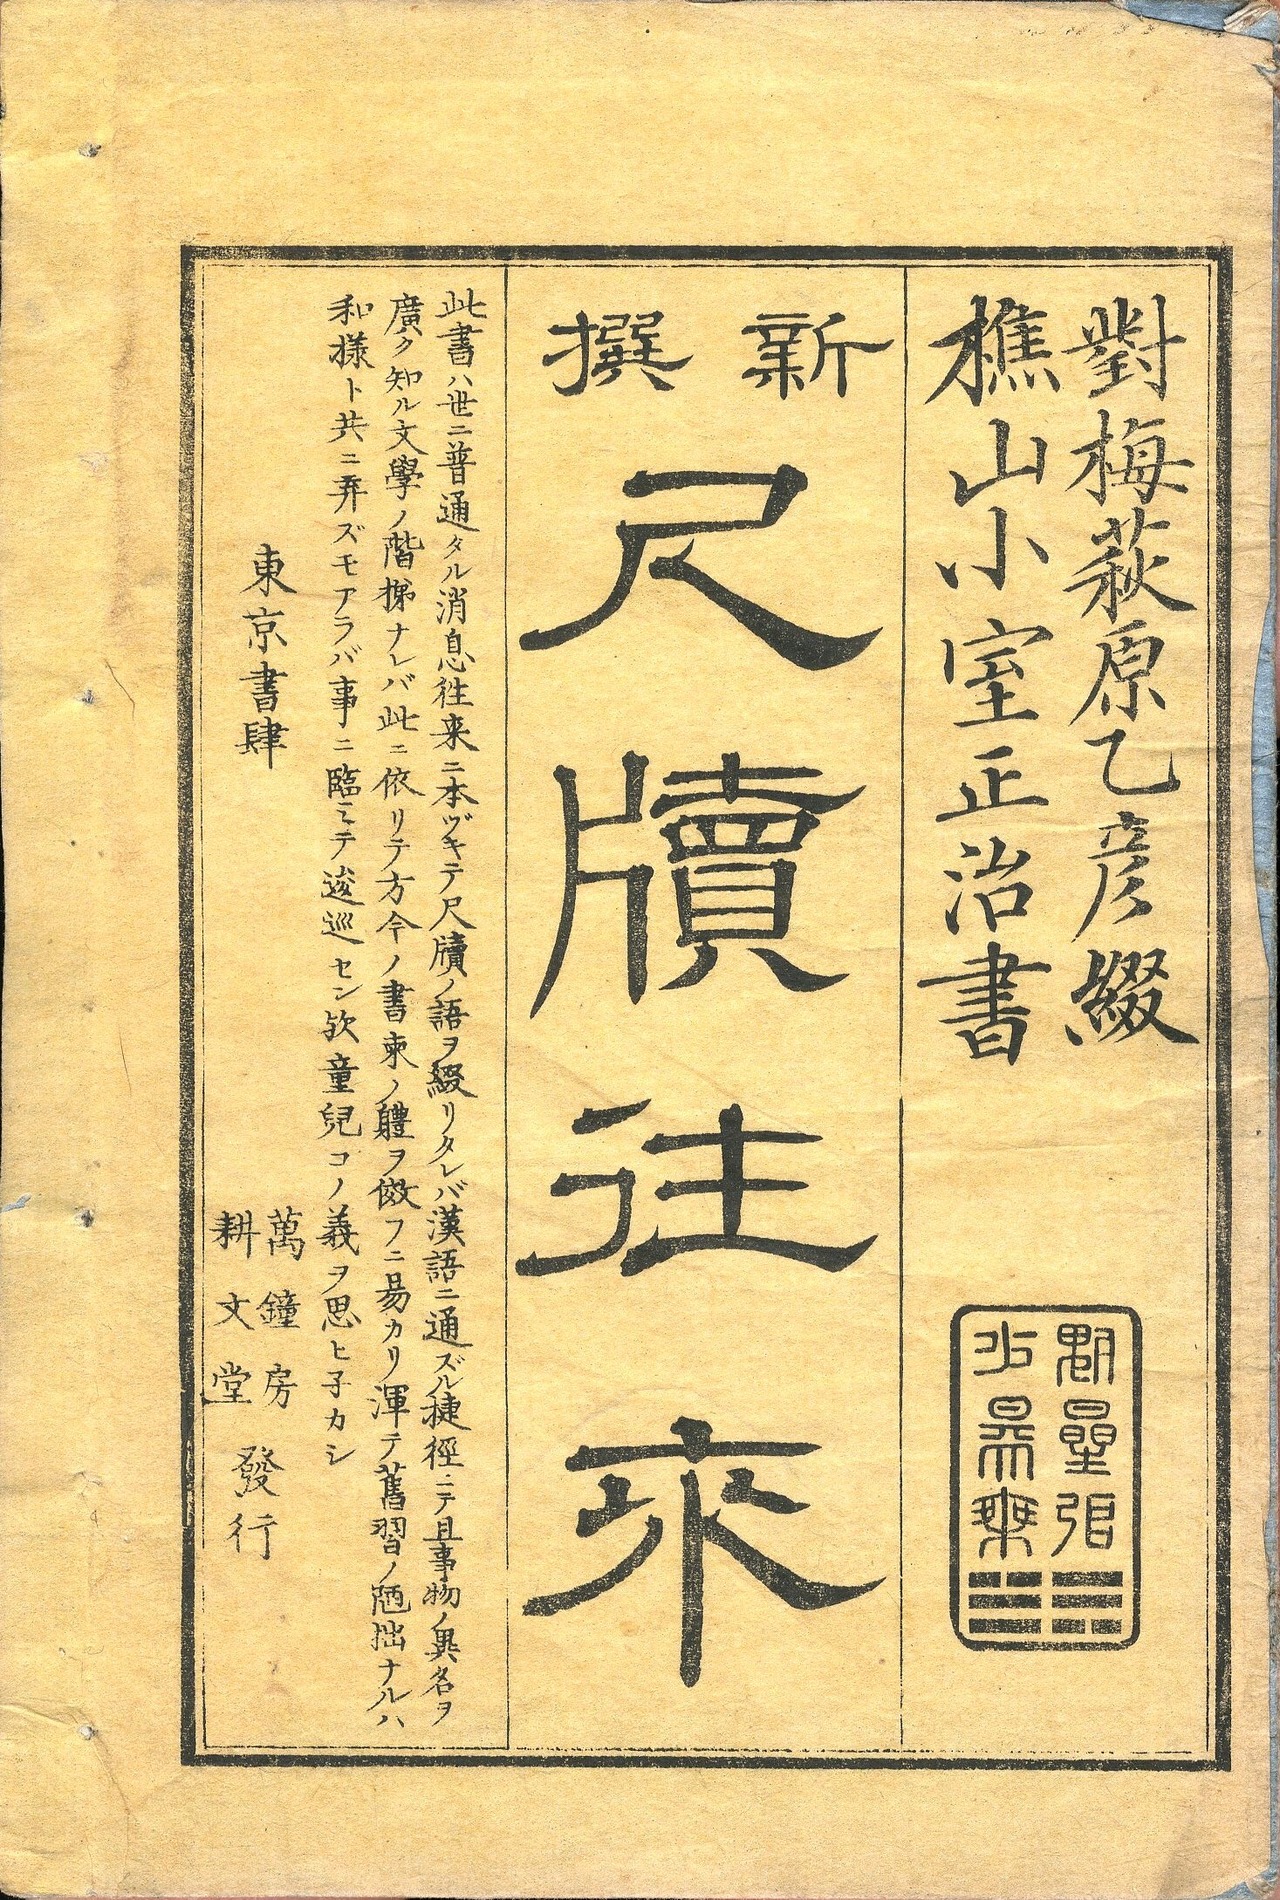 對梅萩原乙彦綴
樵山小室正治書
新撰
尺牘往来
此書ハ世ニ普通タル消息往来ニ本ヅキテ尺牘ノ語ヲ綴リタレバ漢語ニ通ズル捷徑ニテ且事物ノ異名ヲ
廣ク知ル文學ノ階梯ナレバ此ニ依リテ方今ノ書柬ノ軆ヲ傚フニ易カリ渾テ舊習ノ陋拙ナルハ
和様ト共ニ弃ズモアラバ事ニ臨ミテ逡巡セン欤童兒コノ義ヲ思ヒ子カシ
東京書肆
萬鐘房
耕文堂
發行